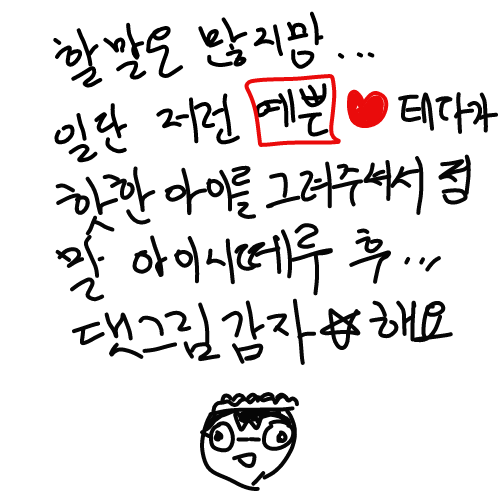 할말은 많지만...
일단 저런 예쁜 ♥ 테다가
하찮한 아이를 그려주셔서 점
말 아이시떼루 후...
댓그림 감자☆해요